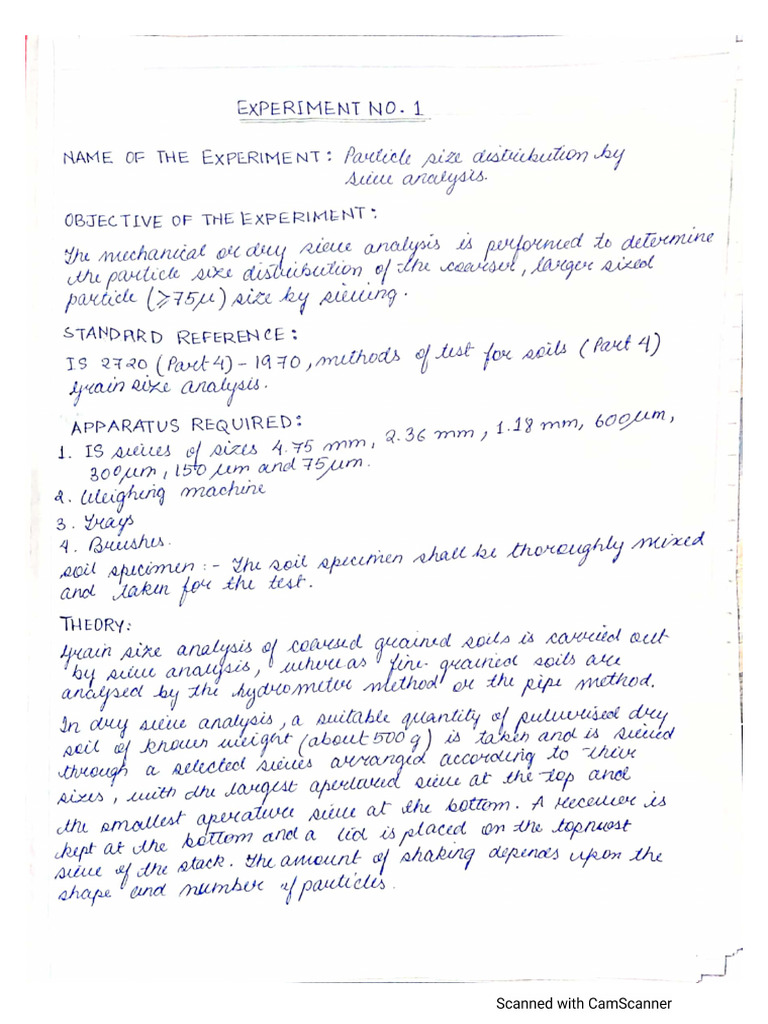 EXPERIMENT NO. 1
NAME OF THE EXPERIMENT: Particle size distribution by
sieve analysis.
OBJECTIVE OF THE EXPERIMENT:
The mechanical or dry sieve analysis is performed to determine
the particle size distribution of the coarser, larger sized
particle (≥75μ) size by sieving.
STANDARD REFERENCE:
IS 2720 (Part 4) - 1970, methods of test for soils (Part 4)
Grain size analysis.
APPARATUS REQUIRED:
1. IS sieves of sizes 4.75 mm, 2.36 mm, 1.18 mm, 600μm,
300μm, 150 μm and 75μm.
2. Weighing machine
3. Trays
4. Brushes.
soil specimen :- The soil specimen shall be thoroughly mixed
and taken for the test.
THEORY:
Grain size analysis of coarsed grained soils is carried out
by sieve analysis, whereas fine-grained soils are
analysed by the hydrometer method or the pipe method.
In dry sieve analysis, a suitable quantity of pulverised dry
soil of known weight (about 500 g) is taken and is sieved
through a selected sieves arranged according to their
sizes, with the largest apertared sieve at the top and
the smallest aperature sieve at the bottom. A receiver is
kept at the bottom and a lid is placed on the topmost
sieve of the stack. The amount of shaking depends upon the
shape and number of particles.
Scanned with CamScanner